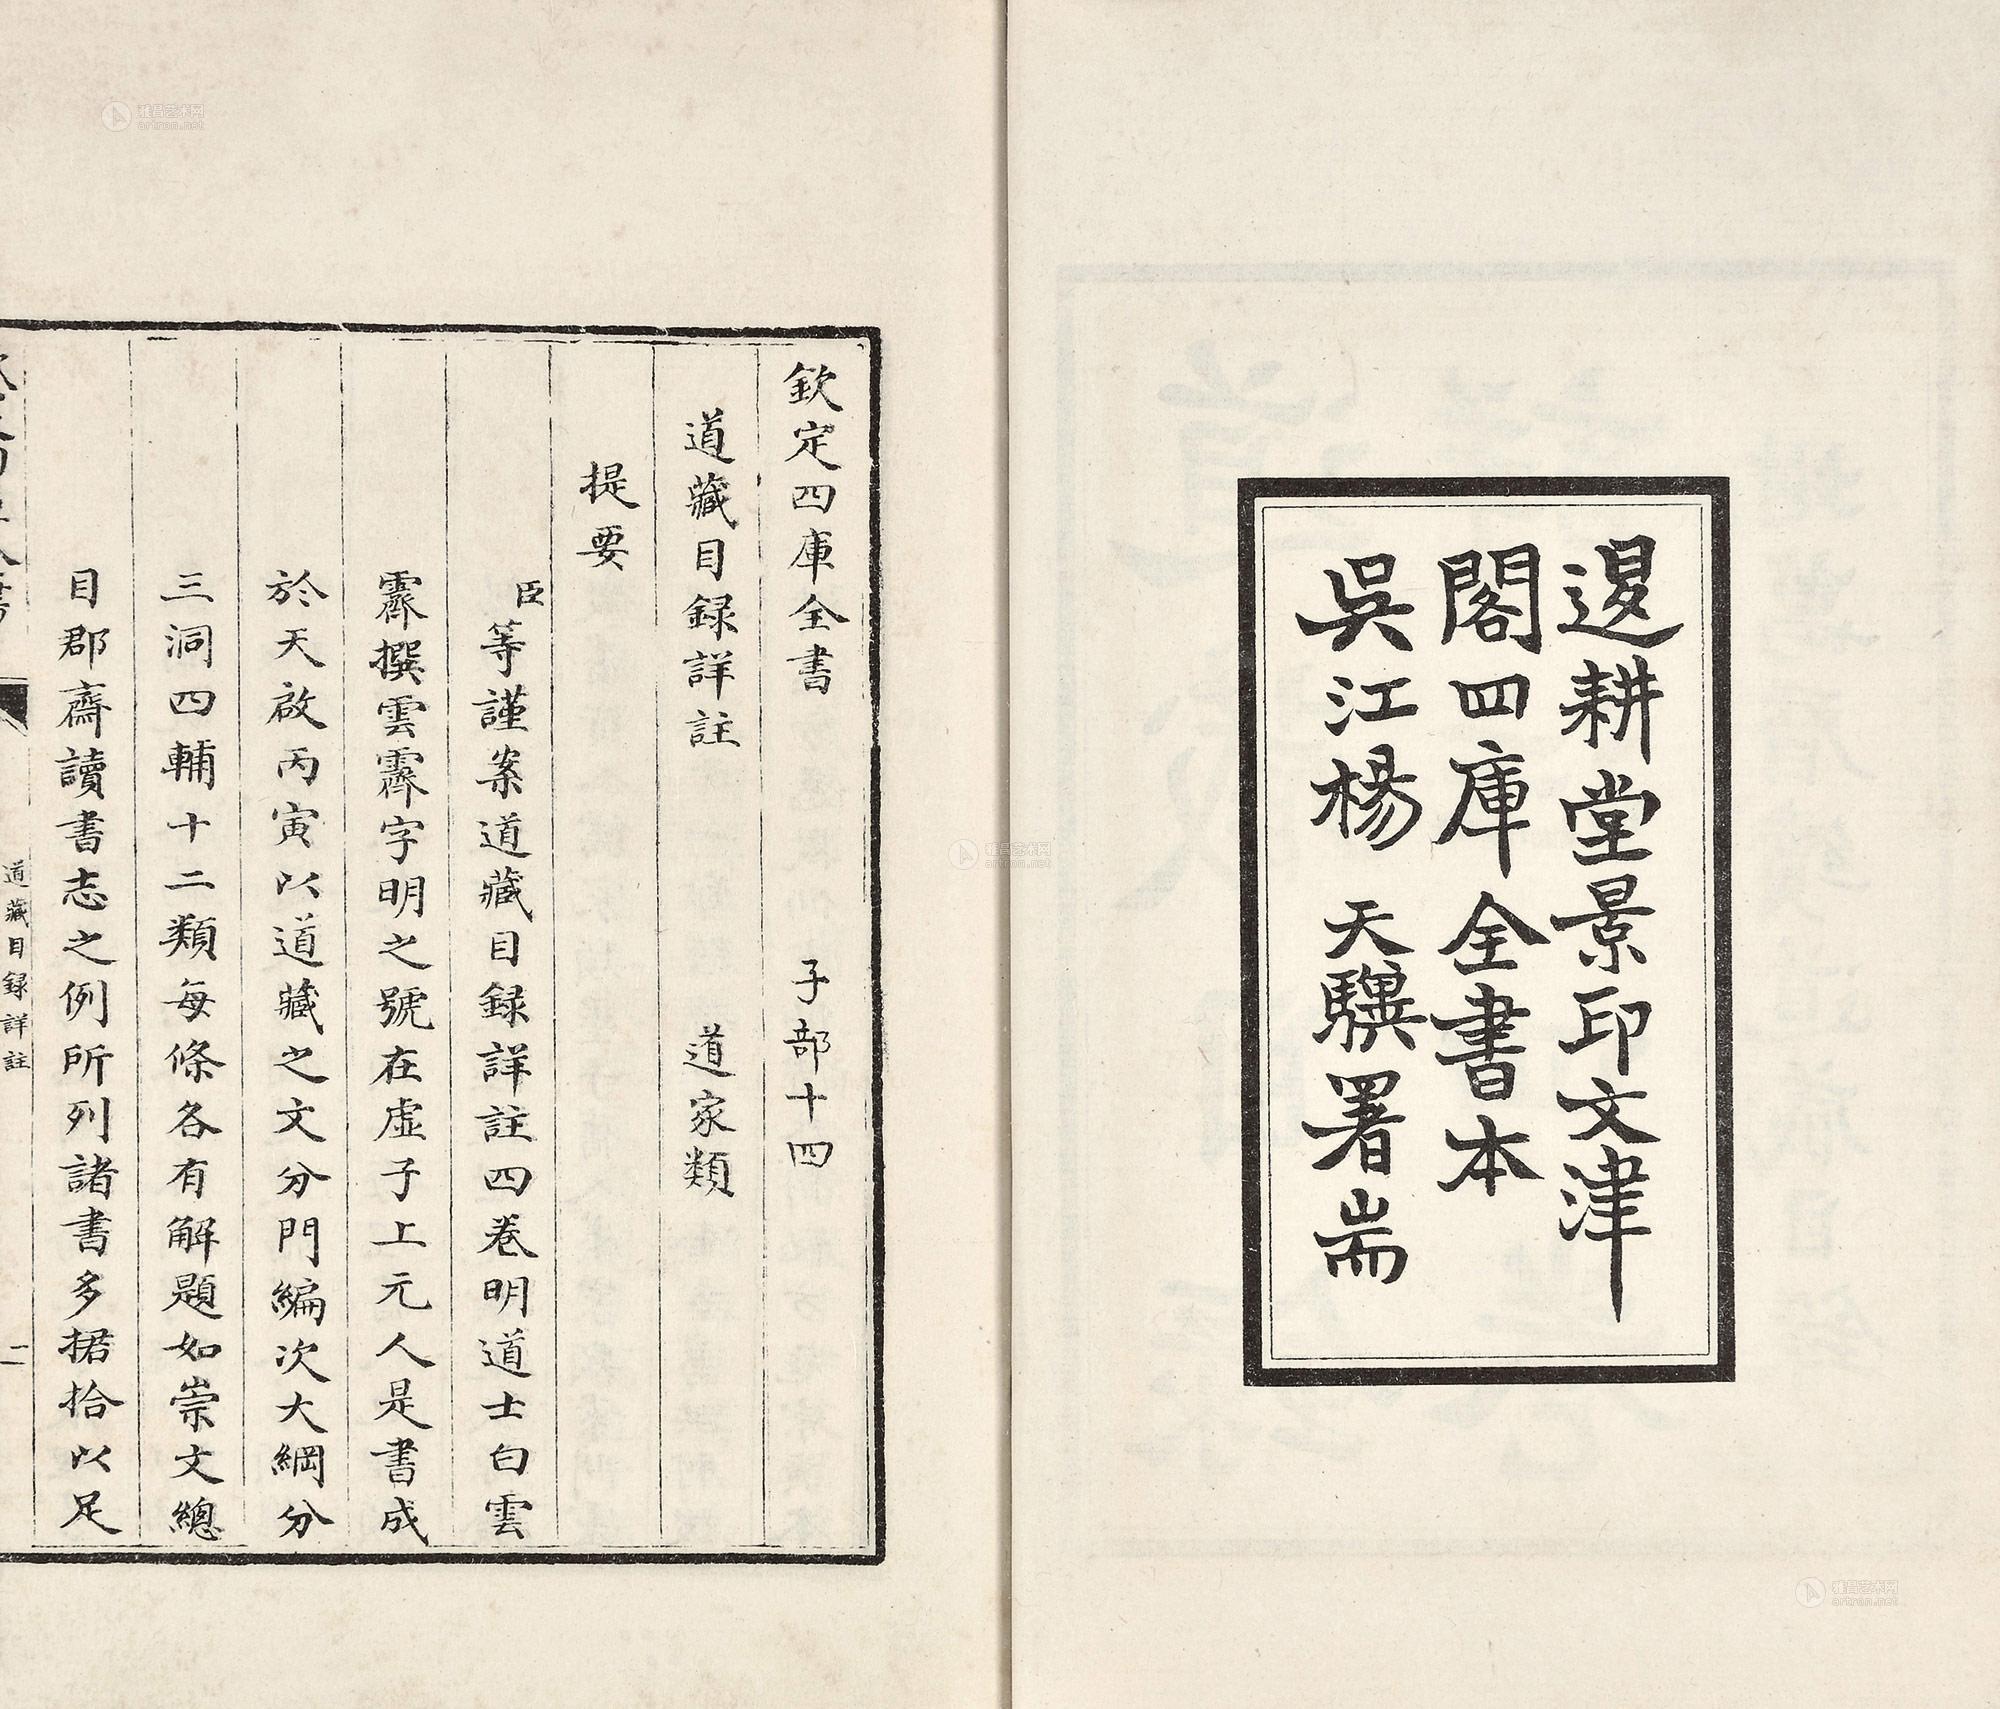 退耕堂景印文津
閣四庫全書本
吳江楊天驥署耑
欽定四庫全書　子部十四
道藏目録詳註　道家類
提要
臣等謹案道藏目録詳註四卷明道士白雲
霽撰雲霽字明之號在虛子上元人是書成
於天啟丙寅以道藏之文分門編次大綱分
三洞四輔十二類每條各有解題如崇文總
目郡齋讀書志之例所列諸書多捃拾以足
道藏目録詳註
雅昌艺术网
artron.net
雅昌艺术网
artron.net
雅昌艺术网
artron.net